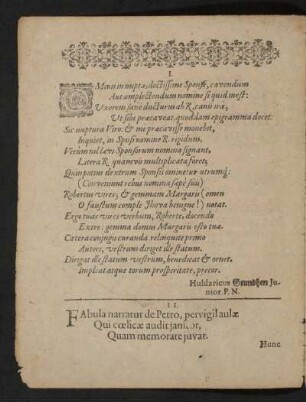 I.
nuptæ, doctissime Sponse, cavendum
Aut amplectendum nomine si quid inest:
Uxorem sanè docturus ab R. canina,
Ut sibi præcaveat, quoddam epigramma docet.
Sic nuptura Viro: & me præcavisse monebit,
Inquiet, in Sponsi nomine R. rigidum.
Verùm nil Sponsorum nomina signant,
Litera R. quamvis multiplicata foret,
Quin potius dextrum Sponsis omen utrumq;
(Conveniunt rebus nomina sæpe suis)
Robertus vires, & gemmam Margaris (omen
O faustum comple Jhova benigne!) notat.
Ergò tuæ vires verbum, Roberte, docendo
Exere: gemma domus Margaris esto tuæ.
Cetera conjugii curanda relinquite primo
Autori, vestrum diriget ille statum.
Dirigat ille statum vestrum, benedicat & ornet,
Impleat atque torum prosperitate, precor.
Huldaricus Grundhen Ju-
nior P. N.
II.
FAbula narratur de Petro, pervigil aulæ
Qui cœlicæ audit janitor,
Quam memorare juvat.
Hunc